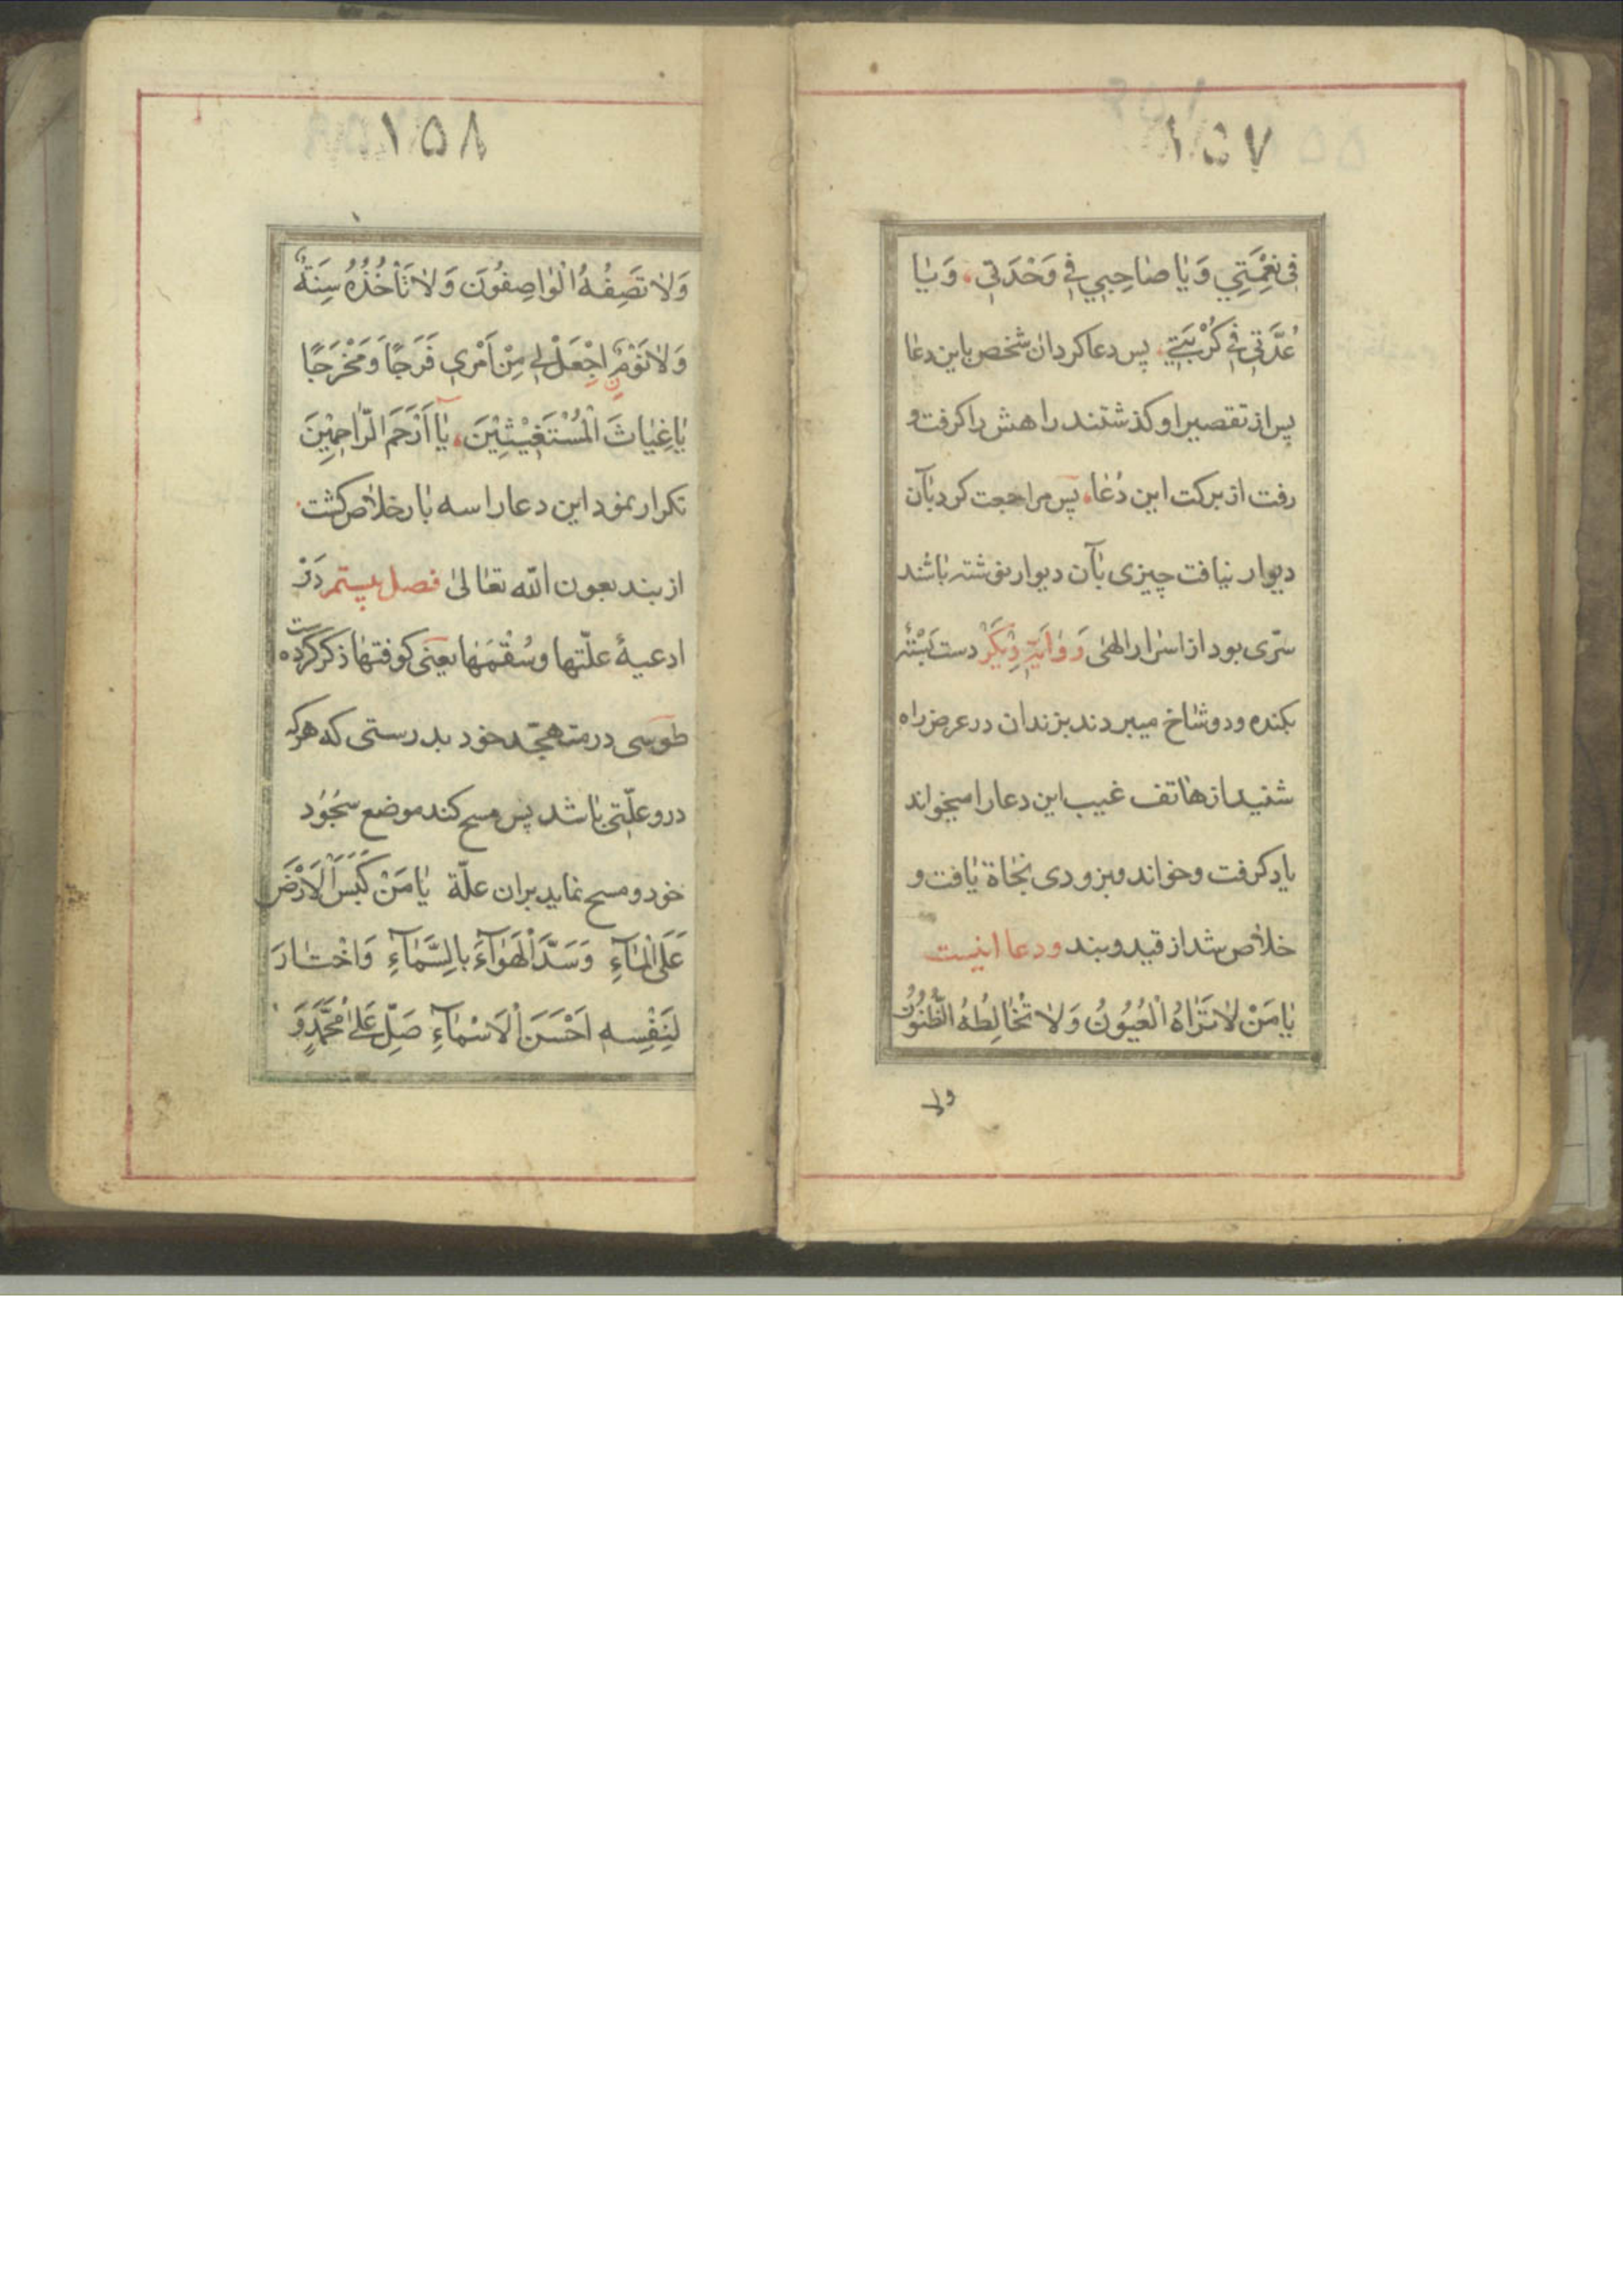 ١٥٧
فِي نِعْمَتِي وَيَا صَاحِبِي فِي وَحْدَتِي وَيَا
عُدَّتِي فِي كُرْبَتِي پس دعا كرد ان شخص باين دعا
پس از تقصير او كذشتند راهش را كرفت و
رفت از بركت اين دُعا پس مراجعت كرد بآن
ديوار نيافت چيزى بآن ديوار نوشته باشند
سرّى بود از اسرار الهى رَوَايَةِ دِيكَرْ دست بَسْته
بكنده و دو شاخ ميبردند بزندان در عرض راه
شنيد از هاتف غيب اين دعا را ميخواند
ياد كرفت و خواند و بزودى نجاة يافت و
خلاص شد از قيد و بند و دعا اينست
يَا مَنْ لَا تَرَاهُ الْعُيُونُ وَلَا تُخَالِطُهُ الظُّنُونُ
ولا
١٥٨
وَلَا تَصِفُهُ الْوَاصِفُونَ وَلَا تَأْخُذُهُ سِنَةٌ
وَلَا نَوْمٌ اجْعَلْ لِي مِنْ اَمْرِي فَرَجًا وَمَخْرَجًا
يَا غِيَاثَ الْمُسْتَغِيْثِيْنَ يَا اَرْحَمَ الرَّاحِمِيْنَ
تكرار نمود اين دعا را سه بار خلاص كشت
از بند بعون الله تعالى فصل بيستم دَرْ
ادعيهٔ علّتها و سُقْمَها يعنى كوفتها ذكر كرده ست
طوسى در متهجّد خود بدرستى كه هركه
درو علّتى باشد پس مسح كند موضع سُجُود
خود و مسح نمايد بران علّة يَا مَنْ كَبَسَ الْاَرْضَ
عَلَى الْمَآءِ وَسَدَّ الْهَوَآءَ بِالسَّمَآءِ وَاخْتَارَ
لِنَفْسِهِ اَحْسَنَ الْاَسْمَآءِ صَلِّ عَلَى مُحَمَّدٍ وَ